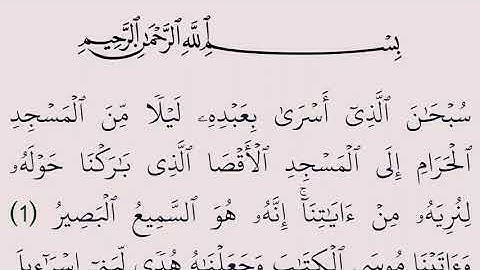 بِسْمِ ٱللَّهِ ٱلرَّحْمَٰنِ ٱلرَّحِيمِ
سُبْحَٰنَ ٱلَّذِىٓ أَسْرَىٰ بِعَبْدِهِۦ لَيْلًا مِّنَ ٱلْمَسْجِدِ
ٱلْحَرَامِ إِلَى ٱلْمَسْجِدِ ٱلْأَقْصَا ٱلَّذِى بَٰرَكْنَا حَوْلَهُۥ
لِنُرِيَهُۥ مِنْ ءَايَٰتِنَآ ۚ إِنَّهُۥ هُوَ ٱلسَّمِيعُ ٱلْبَصِيرُ (1)
وَءَاتَيْنَا مُوسَى ٱلْكِتَٰبَ وَجَعَلْنَٰهُ هُدًى لِّبَنِىٓ إِسْرَٰٓءِيلَ